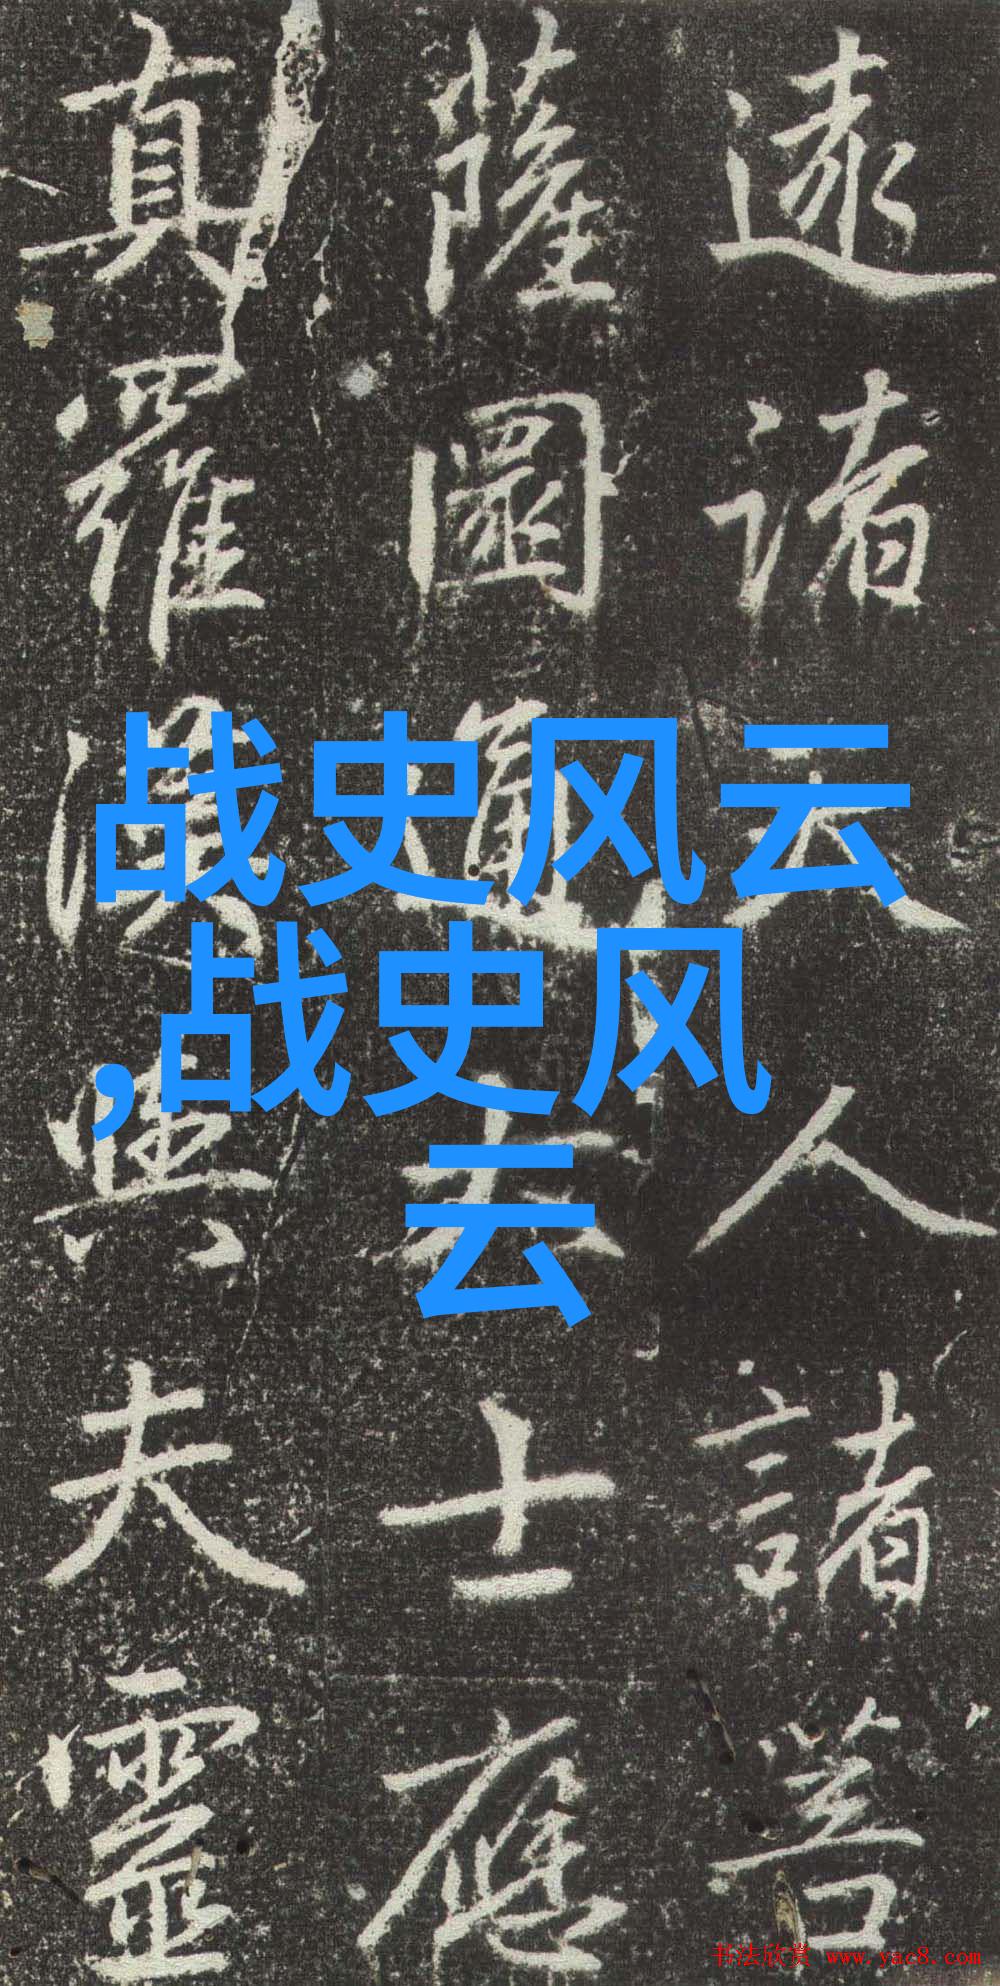 逮諸天人諸菩
薩圜通大士應
真羅漢與夫靈
战史风云
,战史风
云
书法欣赏 www.yac8.com